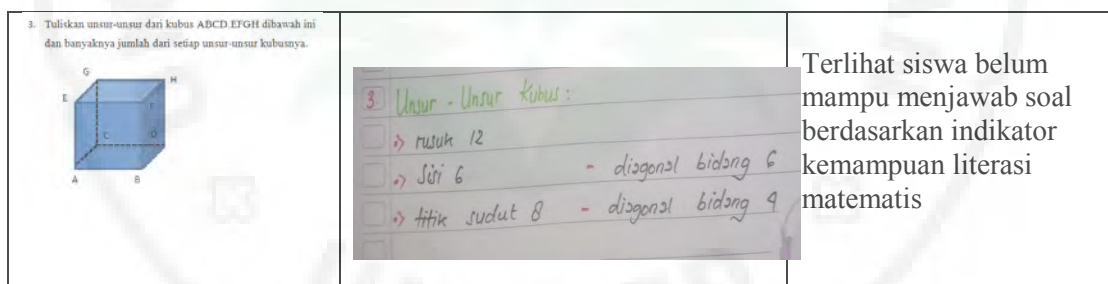 3. Tuliskan unsur-unsur dari kubus ABCD.EFGH dibawah ini
dan banyaknya jumlah dari setiap unsur-unsur kubusnya.
G
H
E
F
C
D
A
B
3 Unsur - Unsur Kubus :
•> rusuk 12
•> Sisi 6 - diagonal bidang 6
•> titik sudut 8 - diagonal bidang 4
Terlihat siswa belum
mampu menjawab soal
berdasarkan indikator
kemampuan literasi
matematis